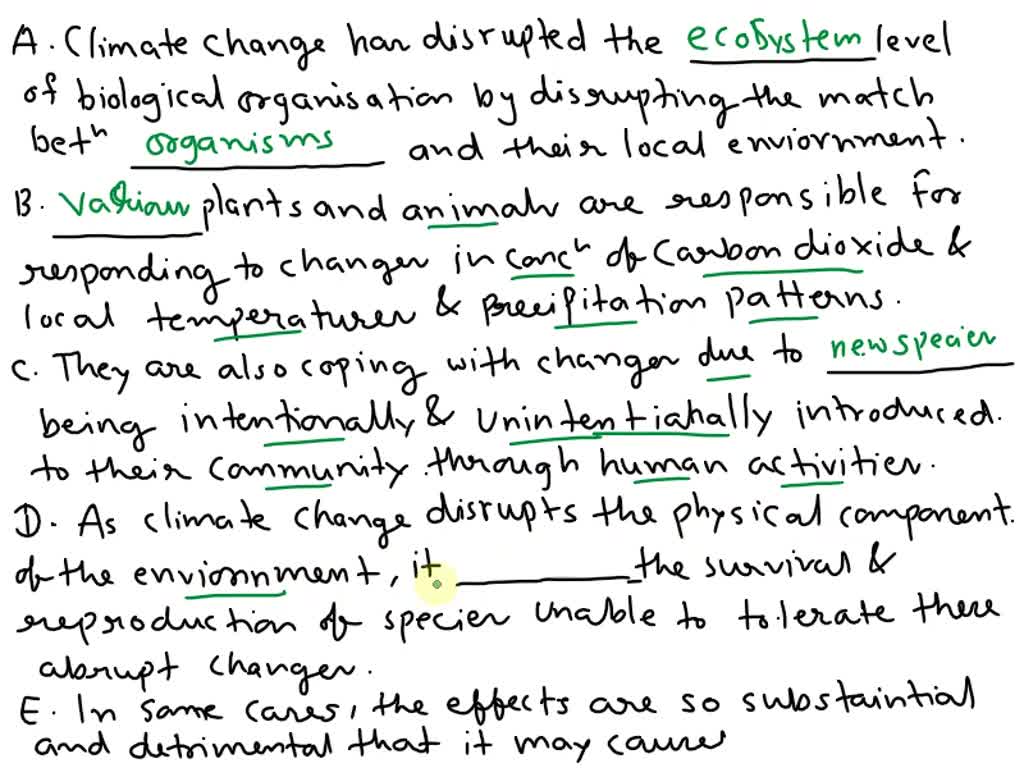 A. Climate change has disrupted the ecosystem level
of biological organisation by disrupting the match
betⁿ organisms and their local enviornment.
B. Various plants and animals are responsible for
responding to changes in concⁿ of Carbon dioxide &
local temperatures & precipitation patterns.
C. They are also coping with changes due to new species
being intentionally & unintentiahally introduced.
to their community through human activities.
D. As climate change disrupts the physical component.
of the envionnment, it ______ the survival &
reproduction of species unable to tolerate these
abrupt changes.
E. In same cases, the effects are so substaintial
and detrimental that it may cause